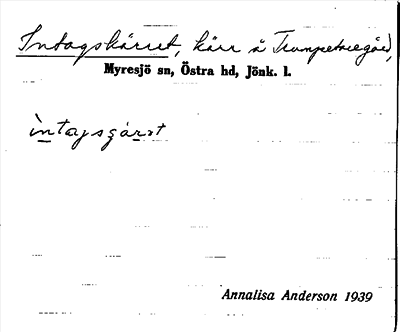 Intagskärret, kärr å Trumpetaregård,
Myresjö sn, Östra hd, Jönk. l.
ìntagsçärət
Annalisa Anderson 1939